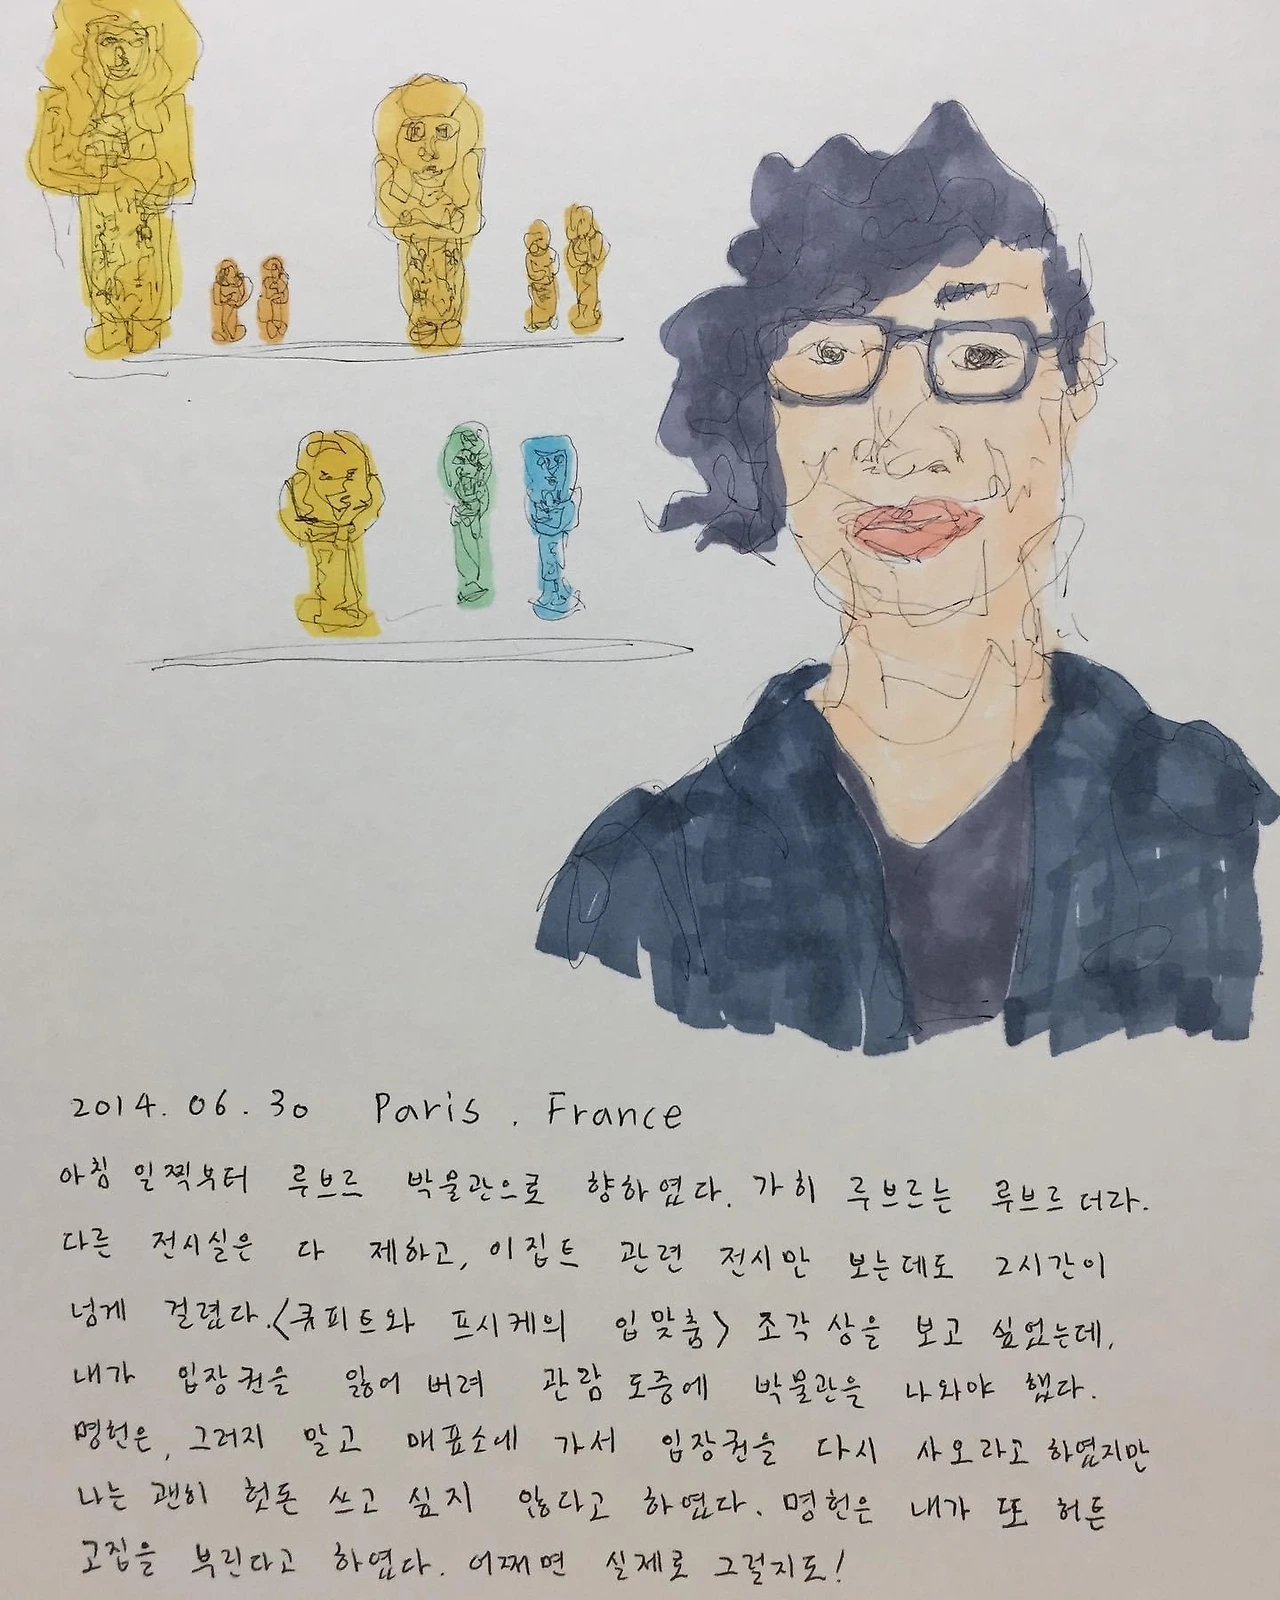 2014. 06. 30 Paris. France
아침 일찍부터 루브르 박물관으로 향하였다. 가히 루브르는 루브르더라.
다른 전시실은 다 제하고, 이집트 관련 전시만 보는데도 2시간이
넘게 걸렸다. <큐피트와 프시케의 입맞춤> 조각상을 보고 싶었는데,
내가 입장권을 잃어버려 관람 도중에 박물관을 나와야 했다.
명헌은, 그러지 말고 매표소에 가서 입장권을 다시 사오라고 하였지만
나는 괜히 헛돈 쓰고 싶지 않다고 하였다. 명헌은 내가 또 허튼
고집을 부린다고 하였다. 어쩌면 실제로 그럴지도!